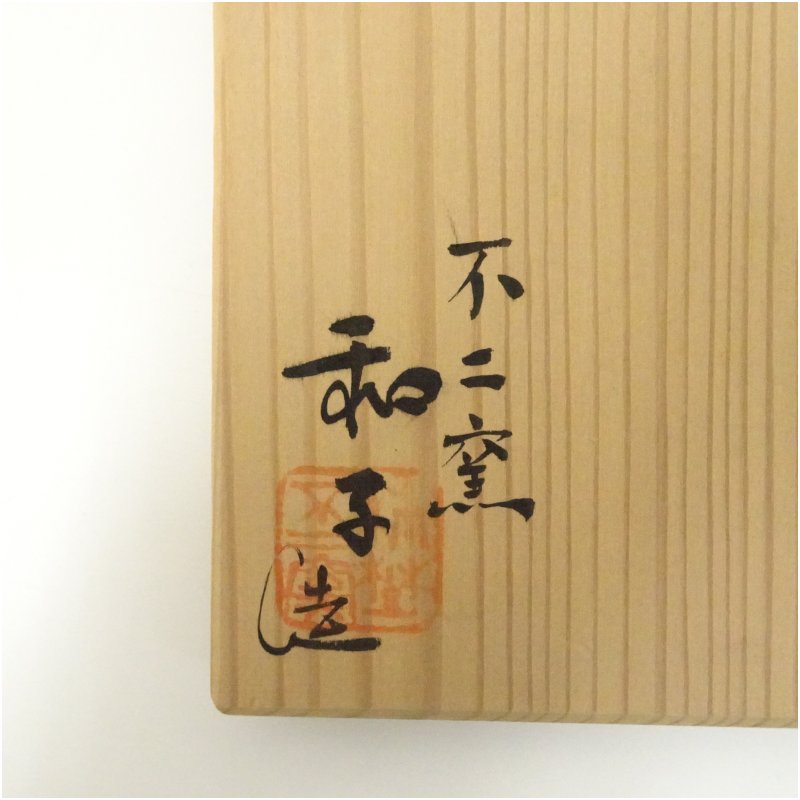 不二窯
和子造